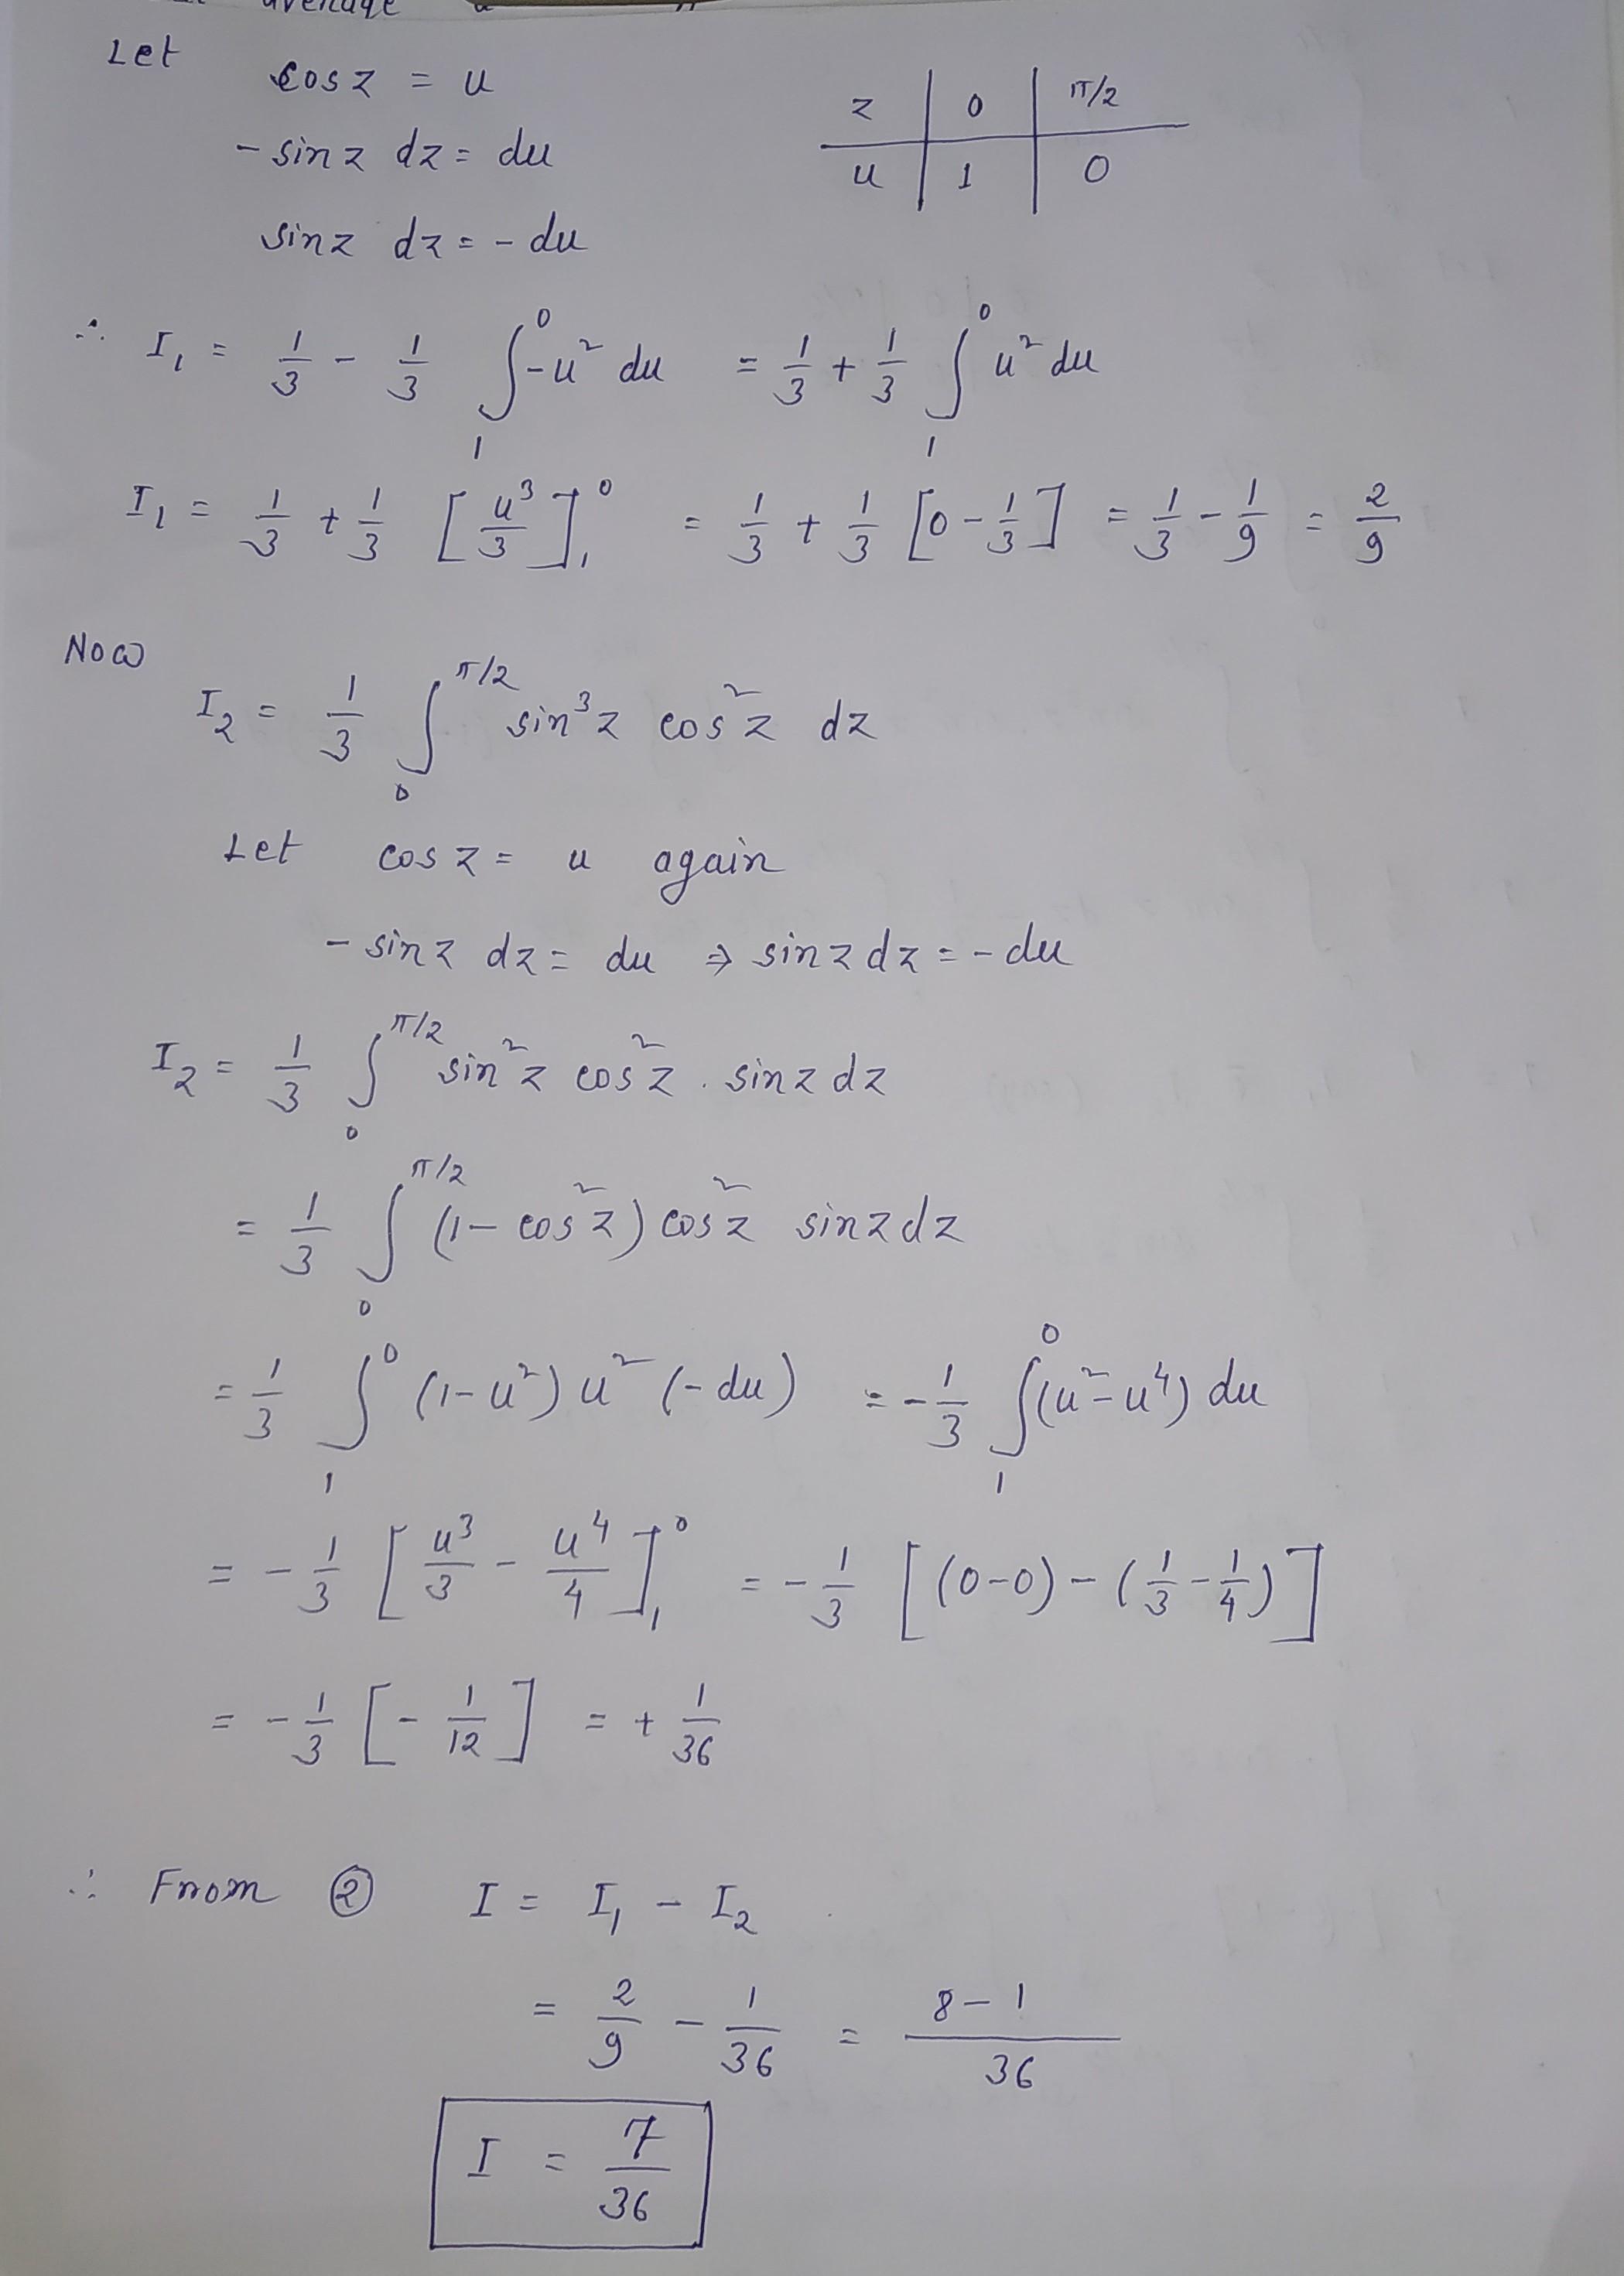 average
Let
cos z = u
z | 0 | π/2
- sin z dz = du
u | 1 | 0
sin z dz = - du
∴ I₁ = 1/3 - 1/3 ∫₁⁰ -u² du = 1/3 + 1/3 ∫₁⁰ u² du
I₁ = 1/3 + 1/3 [u³/3]₁⁰ = 1/3 + 1/3 [0 - 1/3] = 1/3 - 1/9 = 2/9
Now
I₂ = 1/3 ∫₀^π/2 sin³z cos²z dz
Let cos z = u again
- sin z dz = du ⇒ sin z dz = - du
I₂ = 1/3 ∫₀^π/2 sin²z cos²z . sin z dz
= 1/3 ∫₀^π/2 (1 - cos²z) cos²z sin z dz
= 1/3 ∫₁⁰ (1 - u²) u² (- du) = - 1/3 ∫₁⁰ (u² - u⁴) du
= - 1/3 [u³/3 - u⁴/4]₁⁰ = - 1/3 [(0-0) - (1/3 - 1/4)]
= - 1/3 [- 1/12] = + 1/36
∴ From ② I = I₁ - I₂
= 2/9 - 1/36 = 8 - 1/36
I = 7/36